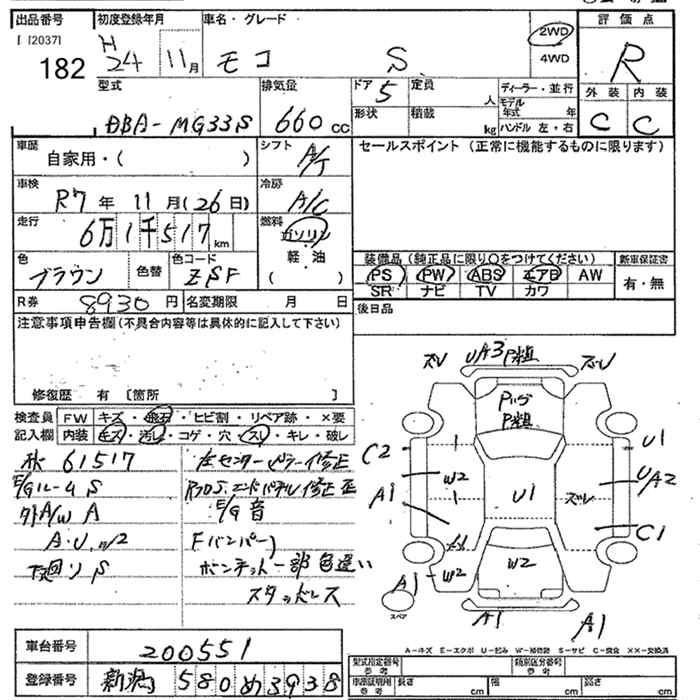 出品番号 初度登録年月 車名・グレード 評価点
[ ]2037]
182
H 24 11月 モコ S 2WD 4WD R
型式 排気量 ドア 定員 ディーラー・並行 外装 内装
DBA-MG33S 660cc 5 人 モデル年式 年 C C
形状 積載 kg ハンドル 左・右
車歴 自家用・( ) シフト A/T セールスポイント (正常に機能するものに限ります)
車検 R7年 11月(26日) 冷房 A/C
走行 6万1千517km 燃料 ガソリン 軽油 ( )
色 ブラウン 色替 色コード ZSF
装備品 (純正品に限り○をつけてください) 新車保証書
PS PW ABS エアB AW 有・無
SR ナビ TV カワ
R券 8930円 名変期限 月 日 後日品
注意事項申告欄(不具合内容等は具体的に記入して下さい)
修復歴 有 [箇所 ]
検査員 FW キズ・飛石・ヒビ割・リペア跡・×要
記入欄 内装 キズ・汚れ・コゲ・穴・スレ・キレ・破レ
61517 左センターピラー修正
E/Gルーム S エンドパネル修正
外A/W A E/G音
A・U Fバンパー
下廻り S ボンネット一部色違い
スタッドレス
ズレ UA3 P粗 ズレ
P粗
C2 U1
W2 UA2
A1 U1 ズレ
C1
W2 W2
A1
スペア
A1 A1
A-キズ E-エクボ U-凹み W-補修跡 S-サビ C-腐食 ××-交換済
車台番号 200551
登録番号 新潟 580 め 3938
型式指定番号 参考 類別区分番号 参考
車両寸法 参考 長さ cm 幅 cm 高さ cm